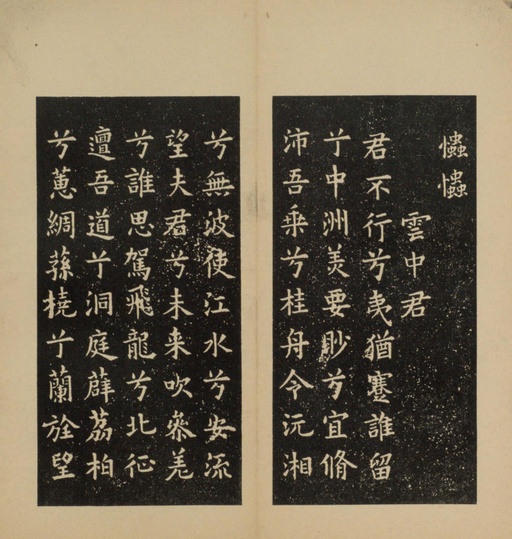 𢥞𢥞
雲中君
君不行兮夷猶蹇誰留
兮中洲美要眇兮宜脩
沛吾乘兮桂舟令沅湘
兮無波使江水兮安流
望夫君兮未来吹參差
兮誰思駕飛龍兮北征
邅吾道兮洞庭薜荔柏
兮蕙綢蓀橈兮蘭旌望